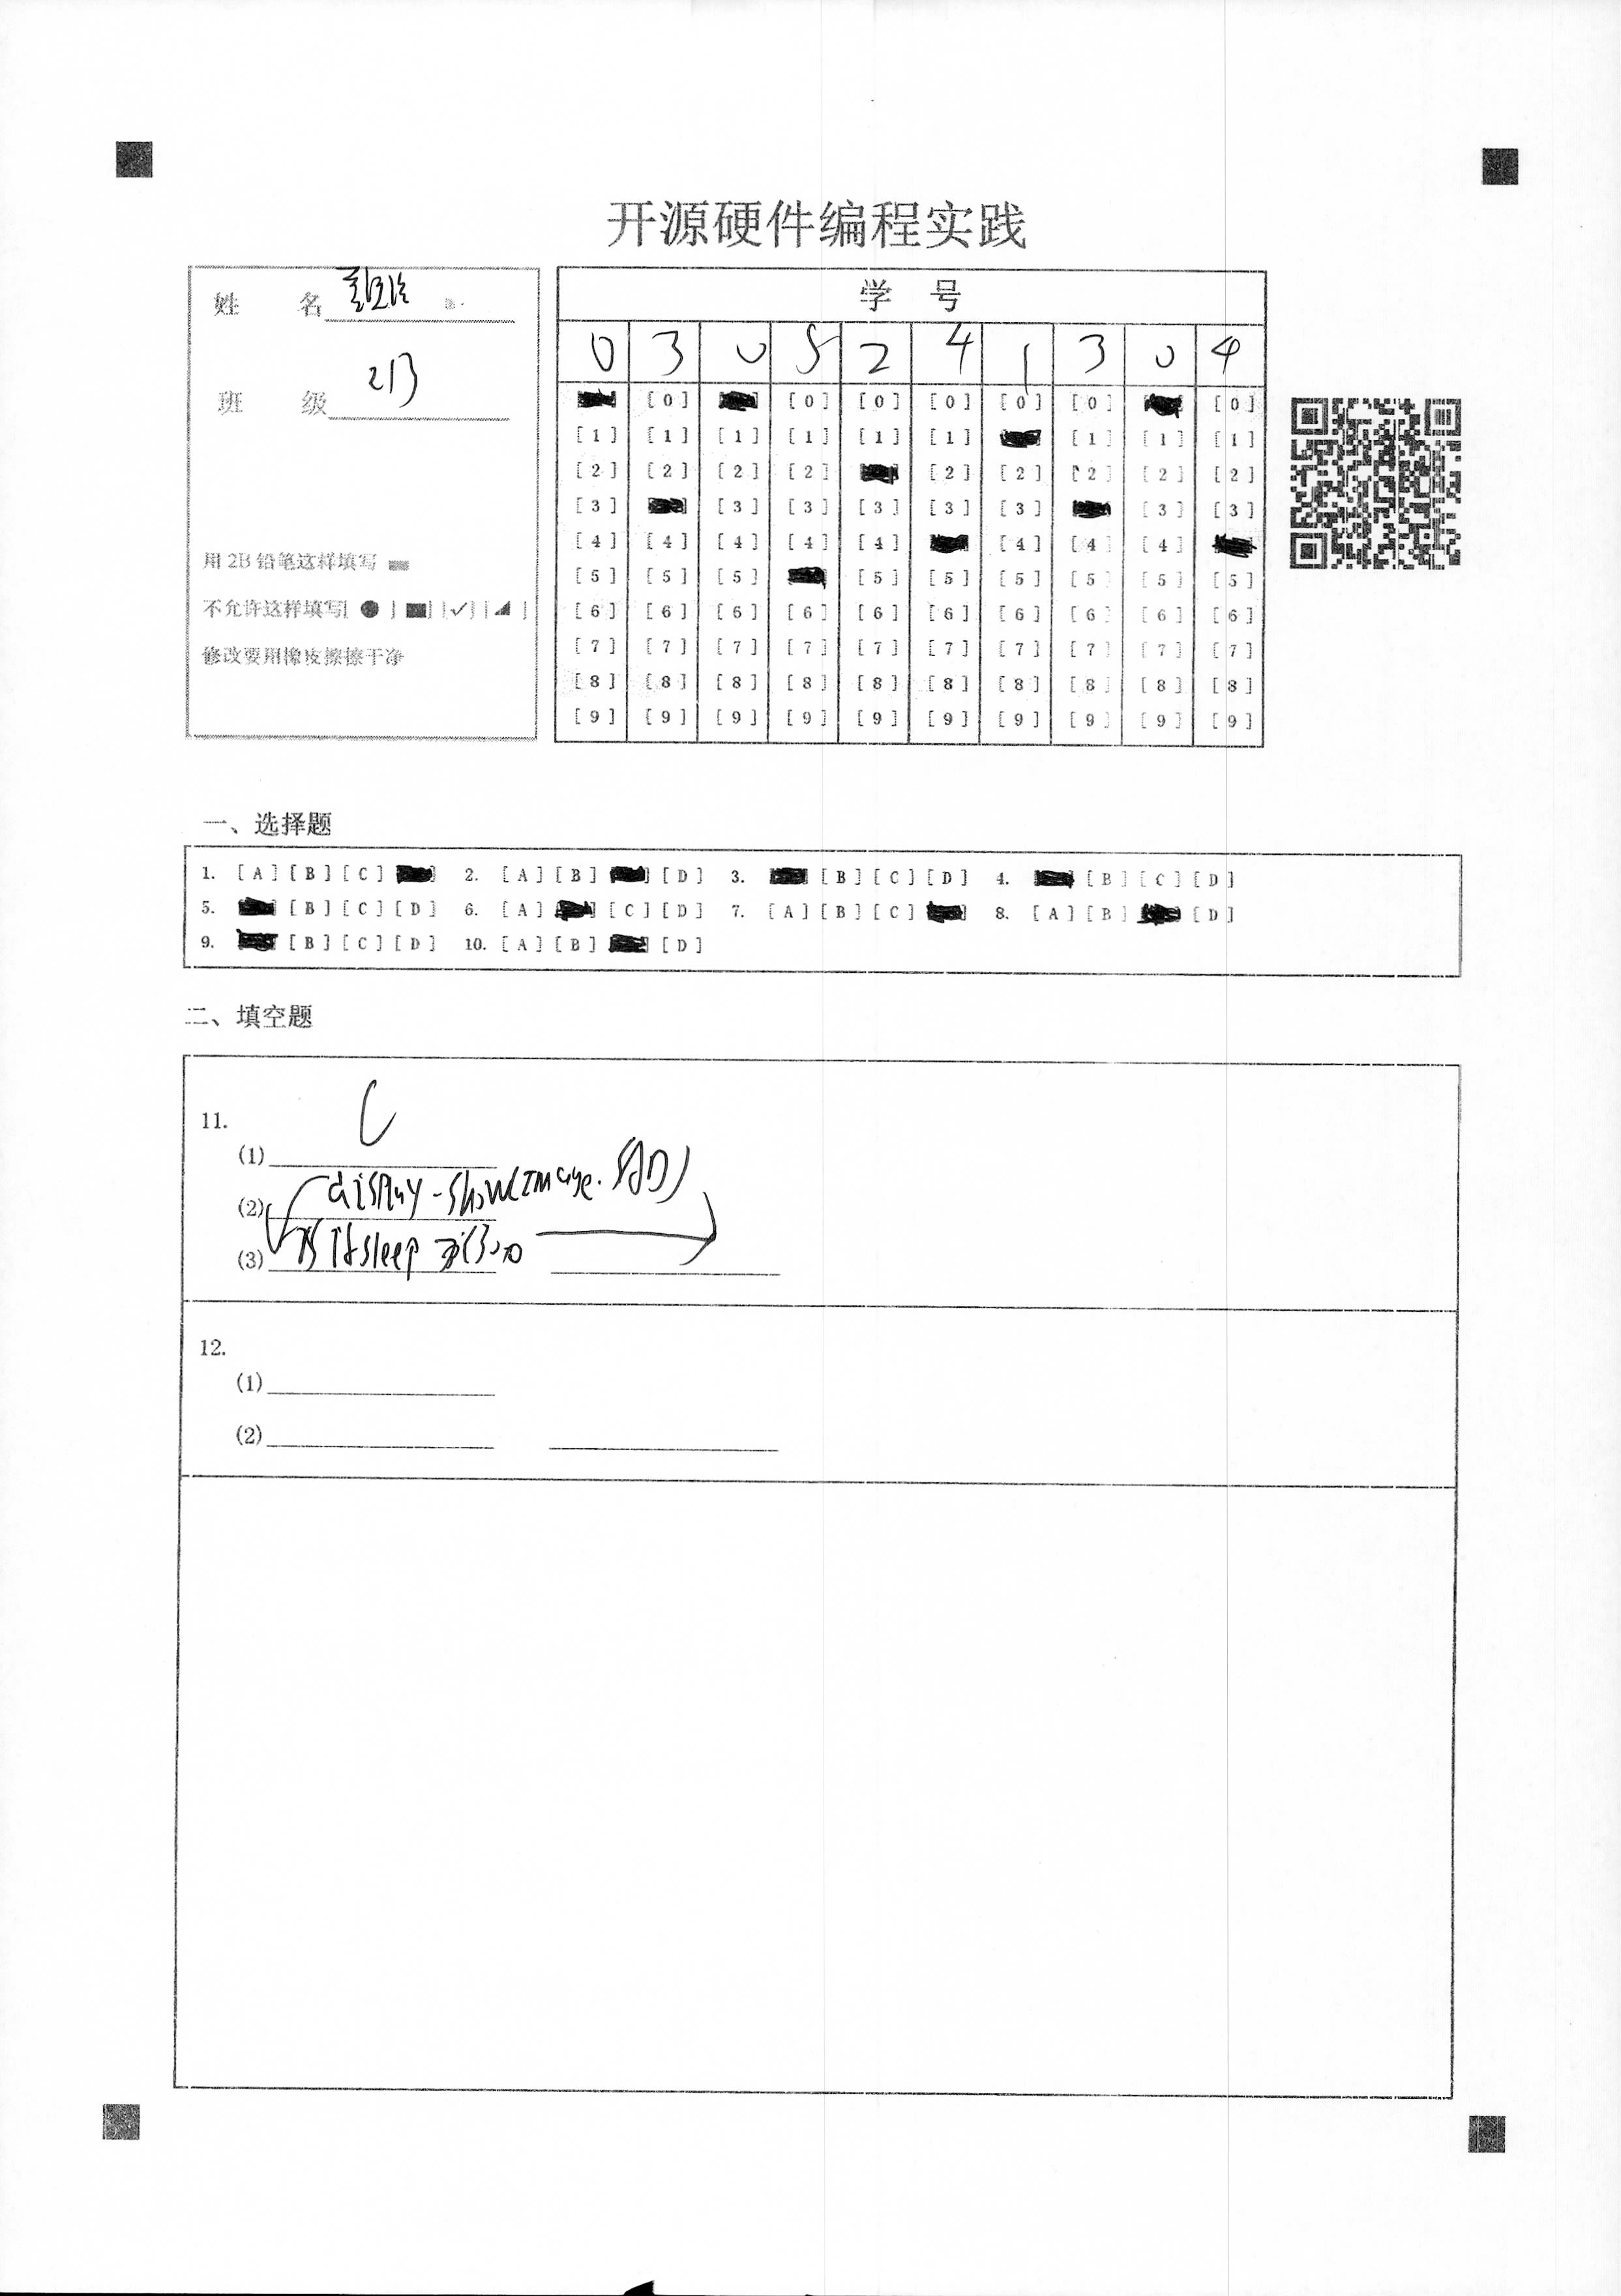 开源硬件编程实践
姓 名
班 级 213
用 2B 铅笔这样填写
不允许这样填写[ ● ] [■] [✓] [◢ ]
修改要用橡皮擦擦干净
学 号
0 3 0 5 2 4 1 3 0 4
[0] [0] [0] [0] [0] [0] [0]
[1] [1] [1] [1] [1] [1] [1] [1] [1]
[2] [2] [2] [2] [2] [2] [2] [2] [2]
[3] [3] [3] [3] [3] [3] [3] [3]
[4] [4] [4] [4] [4] [4] [4] [4]
[5] [5] [5] [5] [5] [5] [5] [5] [5]
[6] [6] [6] [6] [6] [6] [6] [6] [6] [6]
[7] [7] [7] [7] [7] [7] [7] [7] [7] [7]
[8] [8] [8] [8] [8] [8] [8] [8] [8] [8]
[9] [9] [9] [9] [9] [9] [9] [9] [9] [9]
一、选择题
1. [A] [B] [C] 2. [A] [B] [D] 3. [B] [C] [D] 4. [B] [C] [D]
5. [B] [C] [D] 6. [A] [C] [D] 7. [A] [B] [C] 8. [A] [B] [D]
9. [B] [C] [D] 10. [A] [B] [D]
二、填空题
11.
(1) C
(2) display.show(Image.SAD)
(3) sleep
12.
(1)
(2)